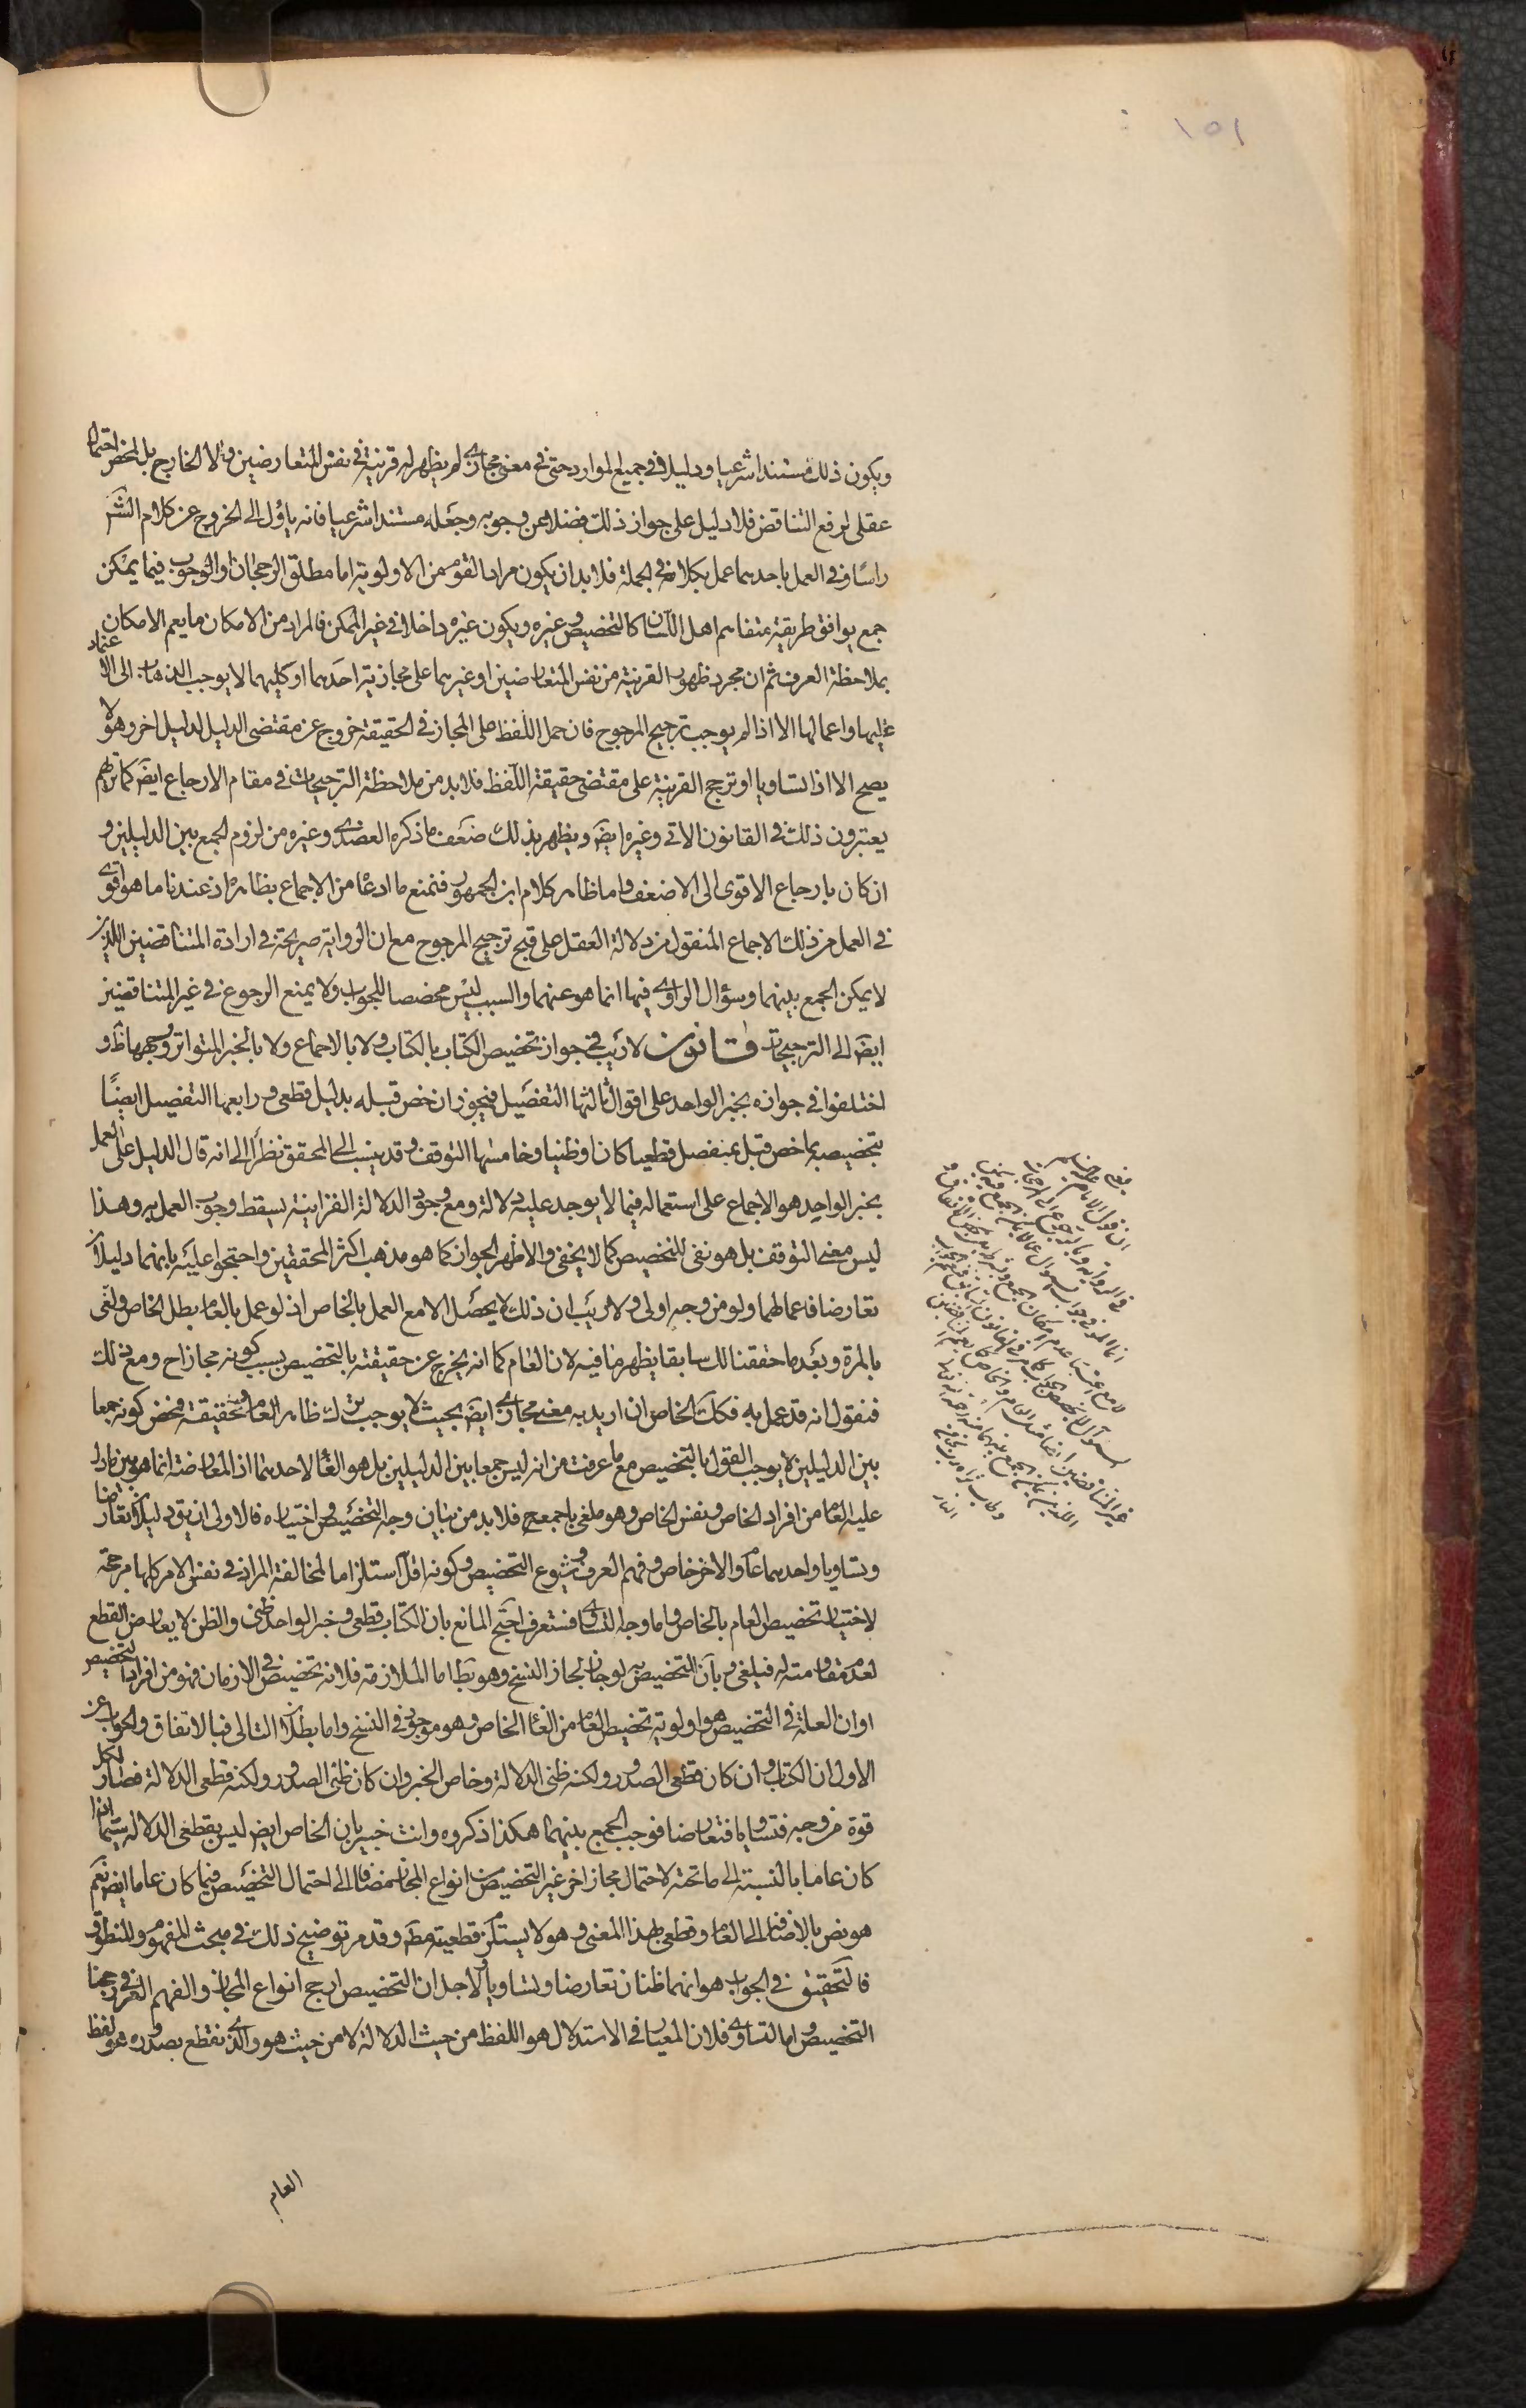 ١٥١
ويكون ذلك مستندا شرعيا ودليلا في جميع الموارد حتى في معنى مجازى لم يظهر له قرينة في نفس المتعارضين ولا الخارج بل لمحض احتمال
عقلى لرفع التناقض فلا دليل على جواز ذلك فضلا عن وجوبه وجعله مستندا شرعيا فانه ياؤل الى الخروج عن كلام الشر
راسا وفى العمل باحدهما عمل بكلامه في الجملة فلا بد ان يكون مراد القوم من الاولوية اما مطلق الرجحان او الوجوب فيما يمكن
جمع يوافق طريقة متفاهم اهل اللسان كالتخصيص وغيره ويكون غيره داخلا في غير الممكن فالمراد من الامكان ما يعم الامكان
بملاحظة العرف ثم ان مجرد ظهور القرينة من نفس المتعارضين او غيرهما على مجازية احدهما او كليهما لا يوجب الذهاب الى الاعتماد
عليها واعمالها الا اذا لم يوجب ترجيح المرجوح فان حمل اللفظ على المجاز في الحقيقة خروج عن مقتضى الدليل لدليل اخر وهو لا
يصح الا اذا تساويا او ترجح القرينة على مقتضى حقيقة اللفظ فلا بد من ملاحظة الترجيحات في مقام الارجاع ايضَ كما تريهم
يعتبرون ذلك في القانون الاتى وغيره ايضَ ويظهر بذلك ضعف ما ذكره العضدى وغيره من لزوم الجمع بين الدليلين و
ان كان بارجاع الاقوى الى الاضعف واما ظاهر كلام ابن الجمهور فنمنع ما ادعاه من الاجماع بظاهره اذ عندنا ما هو اقوى
في العمل من ذلك الاجماع المنقول من دلالة العقل على قبح ترجيح المرجوح مع ان الرواية صريحة في ارادة المتناقضين اللذين
لا يمكن الجمع بينهما وسؤال الراوى فيها انما هو عنهما والسبب ليس مخصصا للجواب ولا يمنع الرجوع في غير المتناقضين
ايضَ الى الترجيحات قانون لا ريب في جواز تخصيص الكتاب بالكتاب ولا بالاجماع ولا بالخبر المتواتر ووجهها ظَ و
اختلفوا في جوازه بخبر الواحد على اقوال ثالثها التفصيل فيجوز ان خص قبله بدليل قطعى ورابعها التفصيل ايضًا
بتخصيصه بما خص قبل بمنفصل قطعيا كان او ظنيا وخامسها التوقف وقد ينسب الى المحقق نظرًا الى انه قال الدليل على العمل
بخبر الواحد هو الاجماع على استعماله فيما لا يوجد عليه دلالة ومع وجود الدلالة القرانية يسقط وجوب العمل به وهذا
ليس معنى التوقف بل هو نفى للتخصيص كما لا يخفى والاظهر الجواز كما هو مذهب اكثر المحققين واحتجوا عليه بانهما دليلان
تعارضا فاعمالهما ولو من وجه اولى ولا ريب ان ذلك لا يحصل الا مع العمل بالخاص اذ لو عمل بالعام بطل الخاص ولغى
بالمرة وبعد ما حققنا لك سابقا يظهر ما فيه لان العام كما انه يخرج عن حقيقته بالتخصيص بسبب كونه مجازا ح ومع ذلك
فنقول انه قد عمل به فكك الخاص ان اريد به معنى مجازى ايضَ بحيث لا يوجب ترك ظاهر العام وحقيقته فمحض كونه جمعا
بين الدليلين لا يوجب القول بالتخصيص مع ما عرفت من انه ليس جمعا بين الدليلين بل هو الغاء لاحدهما اذ المعارضة انما هو بين ما دل
عليه العام من افراد الخاص ونفس الخاص وهو ملغى باجمعه ح فلا بد من بيان وجه التخصيص واختياره فالاولى ان يقَ دليلان تعارضا
وتساويا واحدهما عام والاخر خاص وفهم العرف وشيوع التخصيص وكونه اقل استلزاما لمخالفة المراد في نفس الامر كلها مرجحة
لاختيار تخصيص العام بالخاص واما وجه التساوى فستعرف احتج المانع بان الكتاب قطعى وخبر الواحد ظنى والظن لا يعارض القطع
لعدم مقاومته له فيلغى وبان التخصيص به لو جاز لجاز النسخ وهو بَط اما الملازمة فلانه تخصيص في الازمان فهو من افراد التخصيص
او ان العلة في التخصيص هو اولوية تخصيص العام من الغاء الخاص وهو موجود في النسخ واما بطلان التالى فبالاتفاق والجواب عن
الاول ان الكتاب وان كان قطعى الصدور ولكنه ظنى الدلالة وخاص الخبر وان كان ظنى الصدور ولكنه قطعى الدلالة فصار لكل
قوة من وجه فتساويا فتعارضا فوجب الجمع بينهما هكذا ذكروه وانت خبير بان الخاص ايضَ ليس بقطعى الدلالة سيما اذا
كان عاما بالنسبة الى ما تحته لاحتمال مجاز اخر غير التخصيص من انواع المجاز مضافا الى احتمال التخصيص فيما كان عاما ايضَ نعم
هو نص بالاضافة الى العام وقطعى بهذا المعنى وهو لا يستلزم قطعيته مطَ وقد مر توضيح ذلك في مبحث المفهوم والمنطوق
فالتحقيق في الجواب هو انهما ظنان تعارضا وتساويا ولاجل ان التخصيص ارجح انواع المجاز والفهم العرفى رجحنا
التخصيص واما التساوى فلان المعيار في الاستدلال هو اللفظ من حيث الدلالة لا من حيث هو والذى نقطع بصدوره هو لفظ
العام